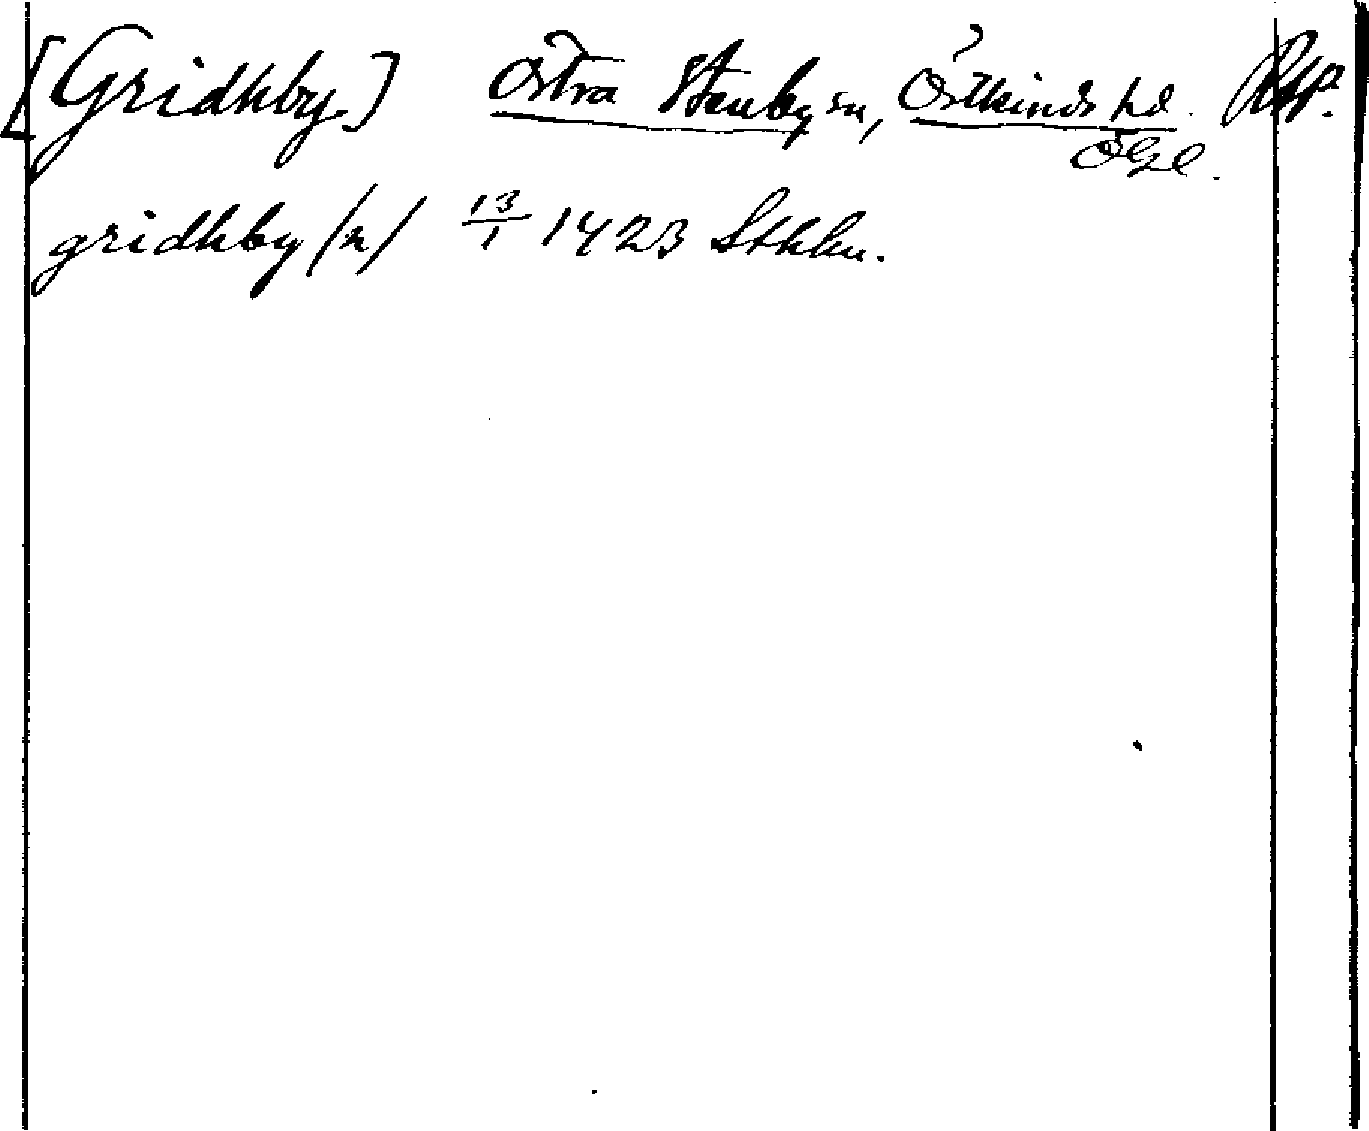 [Gridhby.] Östra Stenby sn, Östkinds hd. Rfp.
ÖGl.
gridhby (n) 13/1 1423 Sthlm.